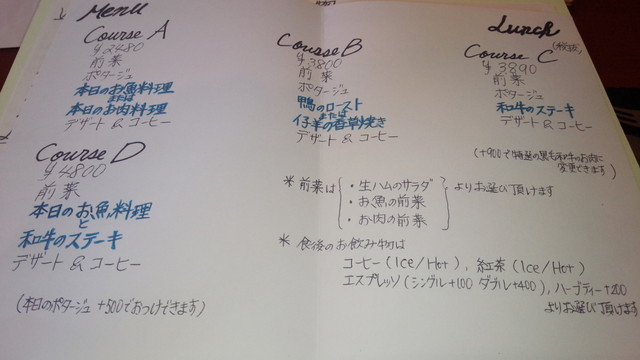 Menu
Lunch
(税抜)
Course A
¥2480
前菜
ポタージュ
本日のお魚料理
または
本日のお肉料理
デザート & コーヒー
Course B
¥3800
前菜
ポタージュ
鴨のロースト
または
仔羊の香草焼き
デザート & コーヒー
Course C
¥3890
前菜
ポタージュ
和牛のステーキ
デザート & コーヒー
(+900で特選の黒毛和牛のお肉に
変更できます)
Course D
¥4800
前菜
本日のお魚料理
と
和牛のステーキ
デザート & コーヒー
(本日のポタージュ +500でおつけできます)
* 前菜は
・生ハムのサラダ
・お魚の前菜
・お肉の前菜
よりお選び頂けます
* 食後のお飲み物は
コーヒー (Ice/Hot), 紅茶 (Ice/Hot)
エスプレッソ (シングル+100 ダブル+400), ハーブティー+200
よりお選び頂けます